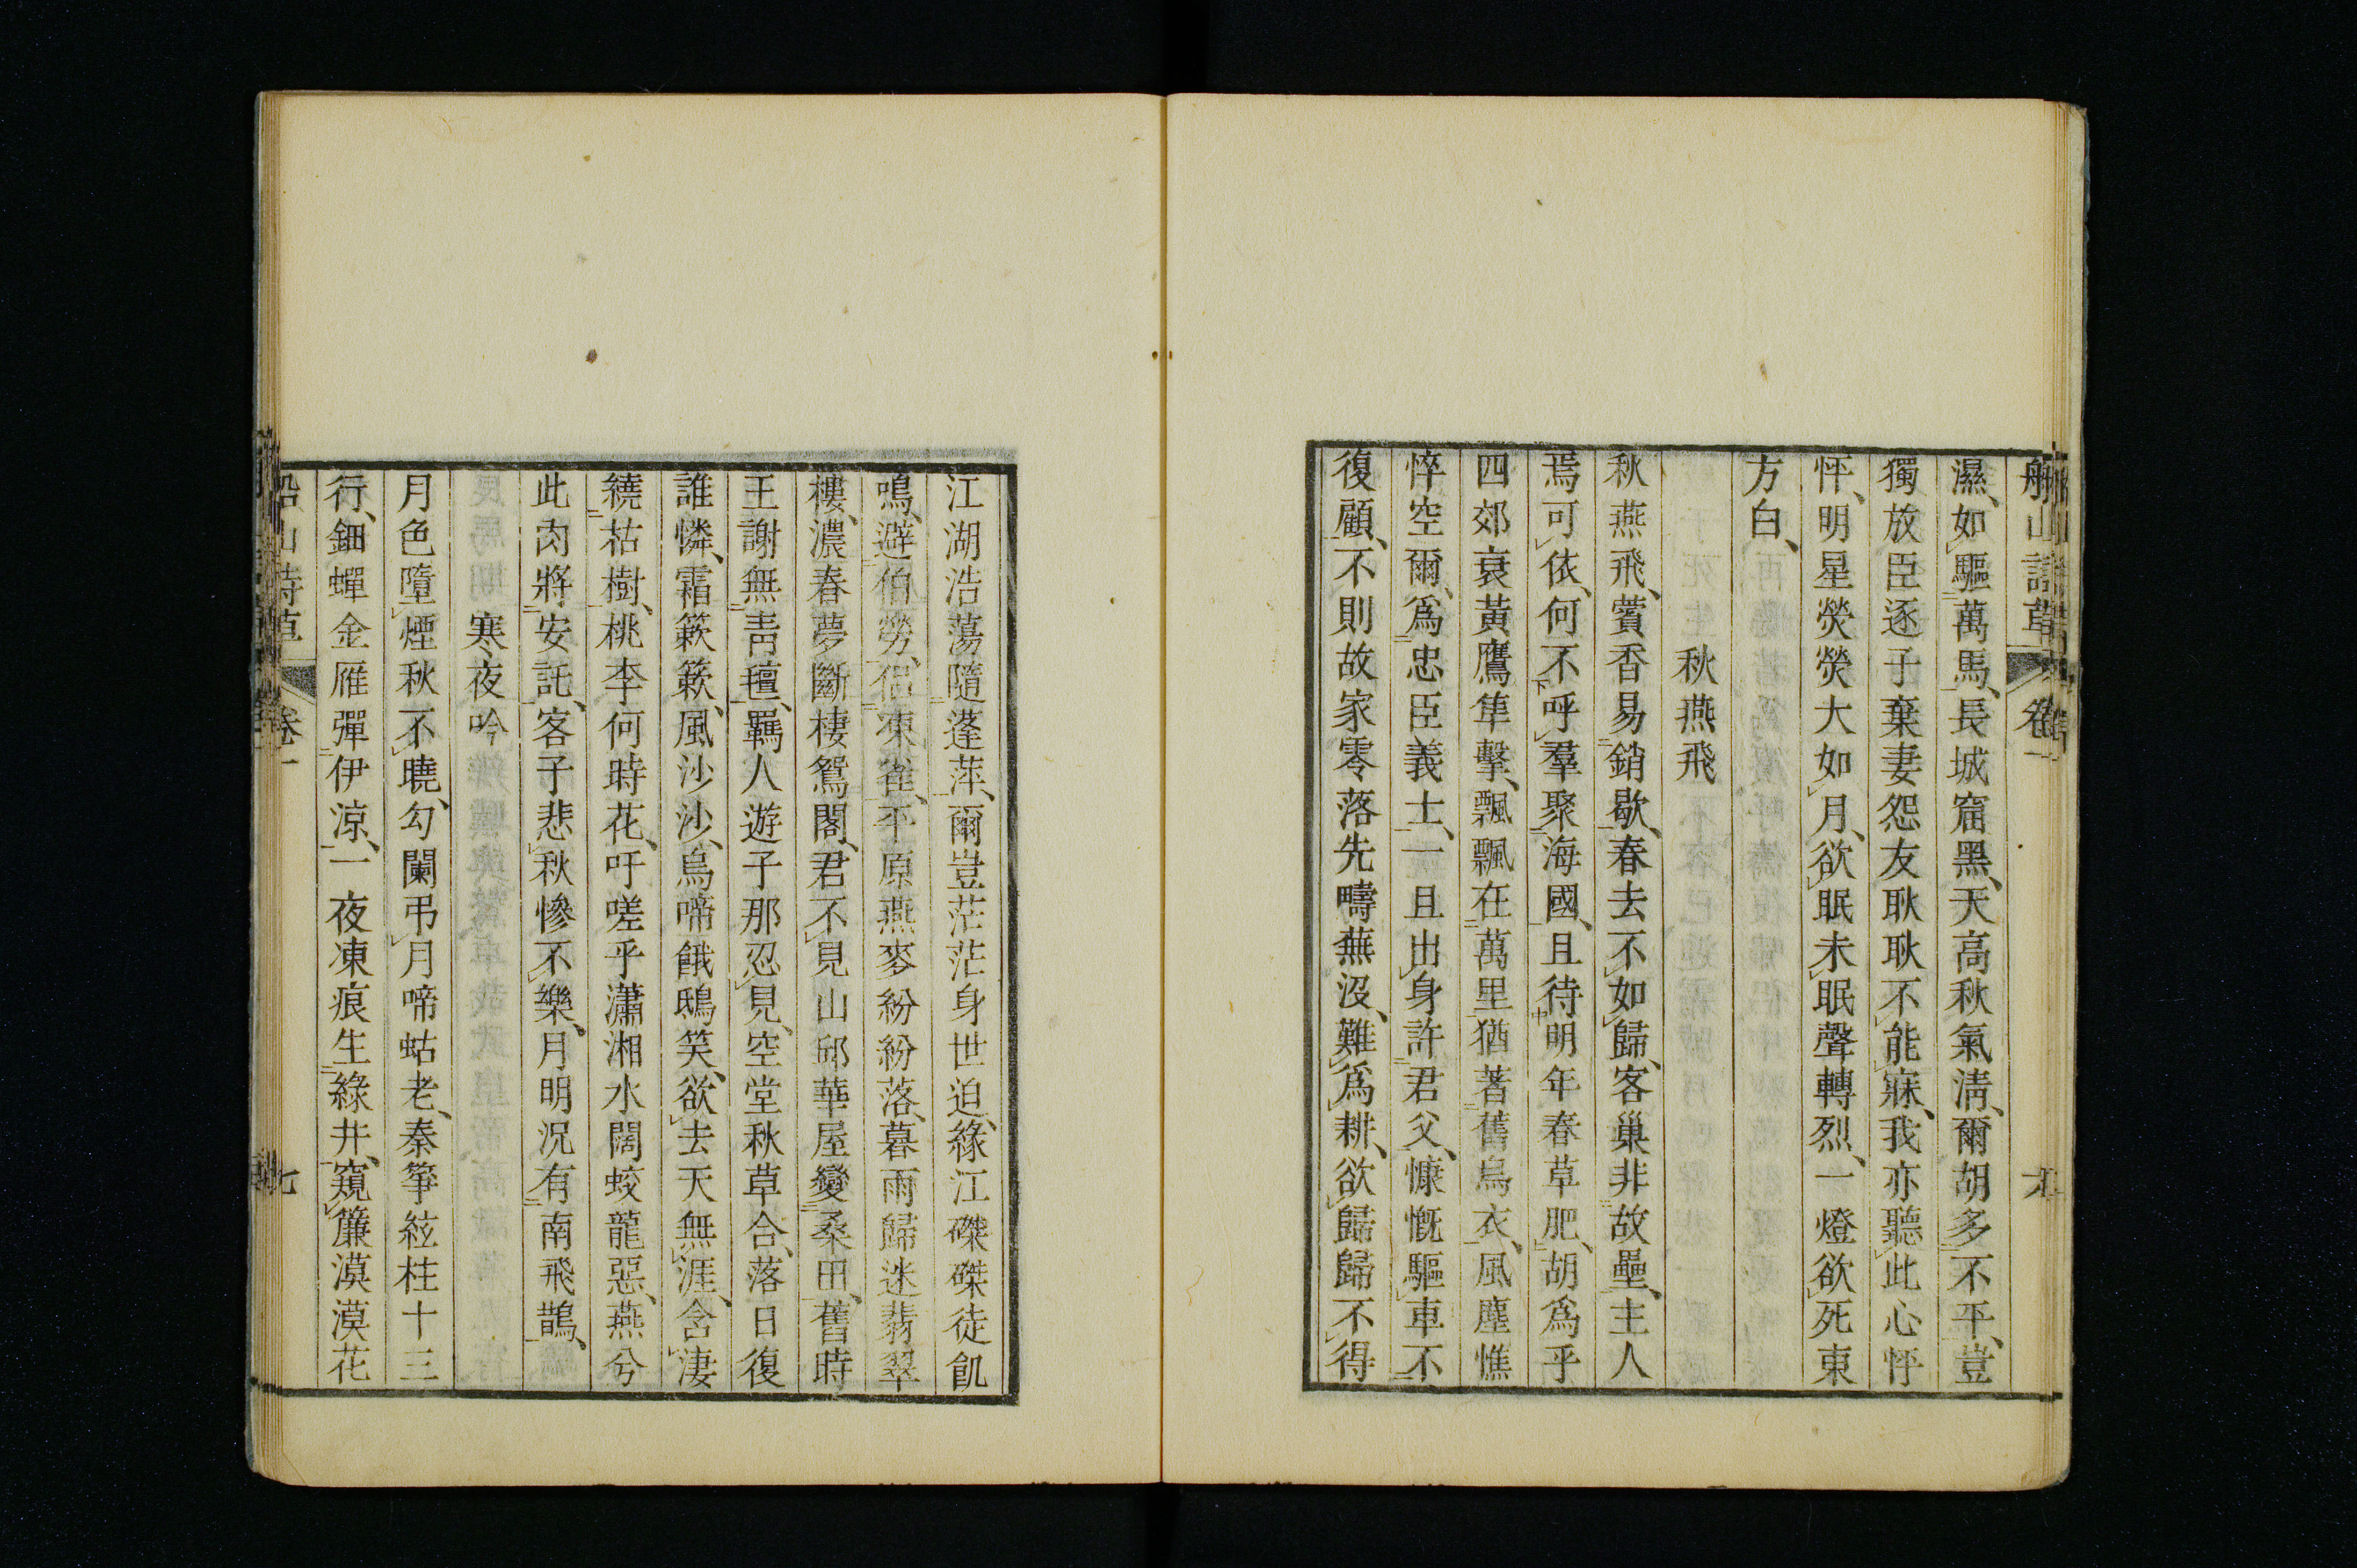 船山詩草 卷一
濕、如驅萬馬、長城窟黑、天高秋氣淸、爾胡多不平、豈
獨放臣逐子棄妻怨友耿耿不能寐、我亦聽此心怦
怦、明星熒熒大如月、欲眠未眠聲轉烈、一燈欲死東
方白、
秋燕飛
秋燕飛、蘦香易銷歇、春去不如歸、客巢非故壘、主人
焉可依、何不呼羣聚海國、且待明年春草肥、胡爲乎
四郊衰黃鷹隼擊、飄飄在萬里猶著舊烏衣、風塵憔
悴空爾、爲忠臣義士、一且出身許君父、慷慨驅車不
復顧、不則故家零落先疇蕪沒、難爲耕、欲歸歸不得
江湖浩蕩隨蓬萍、爾豈茫茫身世迫、緣江磔磔徒飢
鳴、避伯勞、侶凍雀、平原燕麥紛紛落、暮雨歸迷翡翠
樓、濃春夢斷棲鴛閣、君不見山邱華屋變桑田、舊時
王謝無靑氈、羈人遊子那忍見、空堂秋草合、落日復
誰憐、霜簌簌、風沙沙、烏啼餓鴟笑、欲去天無涯、含淒
繞枯樹、桃李何時花、吁嗟乎瀟湘水闊蛟龍惡、燕兮
此肉將安託、客子悲秋慘不樂、月明況有南飛鵲、
寒夜吟
月色墮煙秋不曉、勾闌弔月啼蛄老、秦箏絃柱十三
行、鈿蟬金雁彈伊涼、一夜凍痕生綠井、窺簾漠漠花
船山詩草 卷一 七